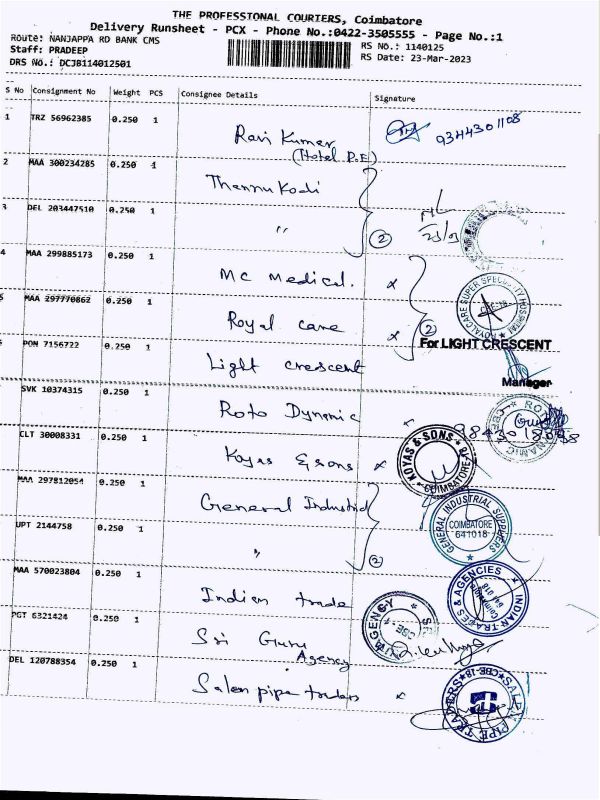 THE PROFESSIONAL COURIERS, Coimbatore
Delivery Runsheet - PCX - Phone No.:0422-3505555 - Page No.:1
Route: NANJAPPA RD BANK CMS
RS No.: 1140125
Staff: PRADEEP
RS Date: 23-Mar-2023
DRS No.: DCJB114012501
S No Consignment No Weight PCS Consignee Details Signature
1 TRZ 56962385 0.250 1 Ravi Kumar 9344301108
(Hotel P.E)
2 MAA 300234285 0.250 1 Thennukodi
3 DEL 203447510 0.250 1 " (2)
4 MAA 299885173 0.250 1 MC Medical. x
5 MAA 297770862 0.250 1 Royal care x (2)
ROYALCARE SUPER SPECIALITY HOSPITAL
CBE-18
PON 7156722 0.250 1 Light crescent
For LIGHT CRESCENT
Manager
SVK 10374315 0.250 1 Roto Dynamic
CLT 30008331 0.250 1 Koyas & sons x
KOYAS & SONS COIMBATORE-18
MAA 297812054 0.250 1 General Industrial
UPT 2144758 0.250 1 " (2)
GENERAL INDUSTRIAL SUPPLIERS
COIMBATORE
641018
MAA 570023804 0.250 1 Indian trade
INDIAN TRADES & AGENCIES
Coimbatore
641 018
PGT 6321424 0.250 1 Sri Guru
Agency
AGENCY
CBE-1
DEL 120788354 0.250 1 Salem pipe traders x
PIPE TRADERS
CBE-18